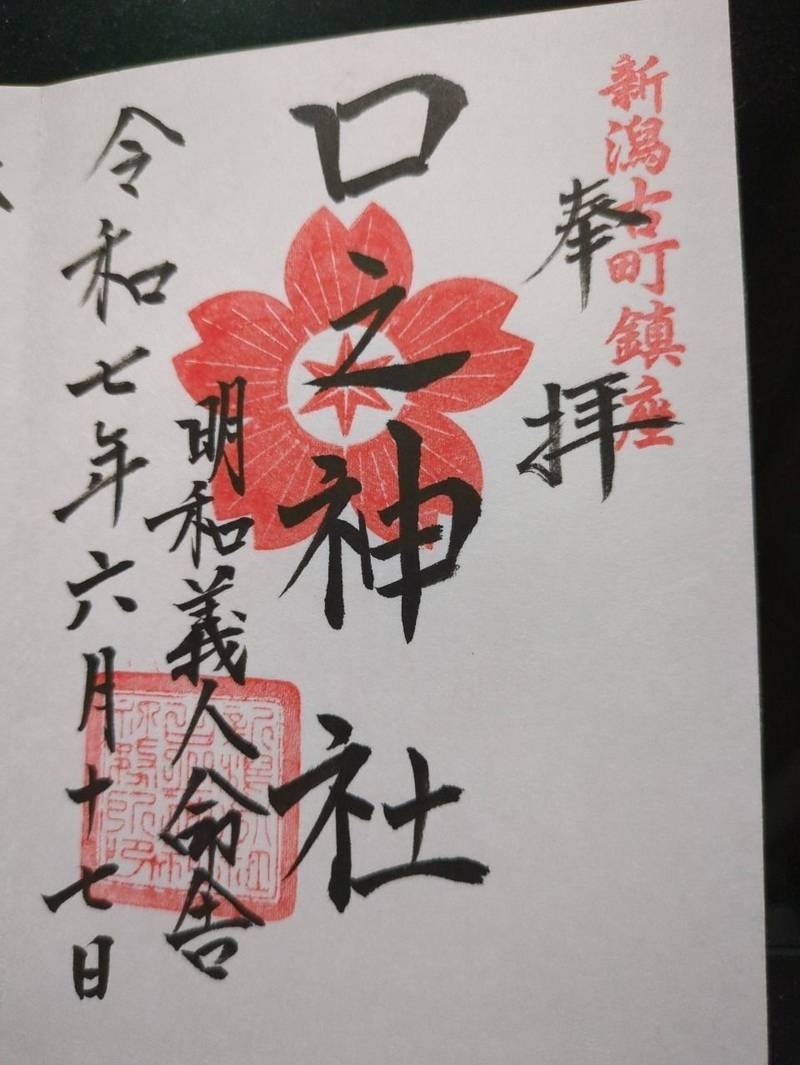 新潟古町鎮座
奉拝
口之神社
明和義人命舎
令和七年六月十七日